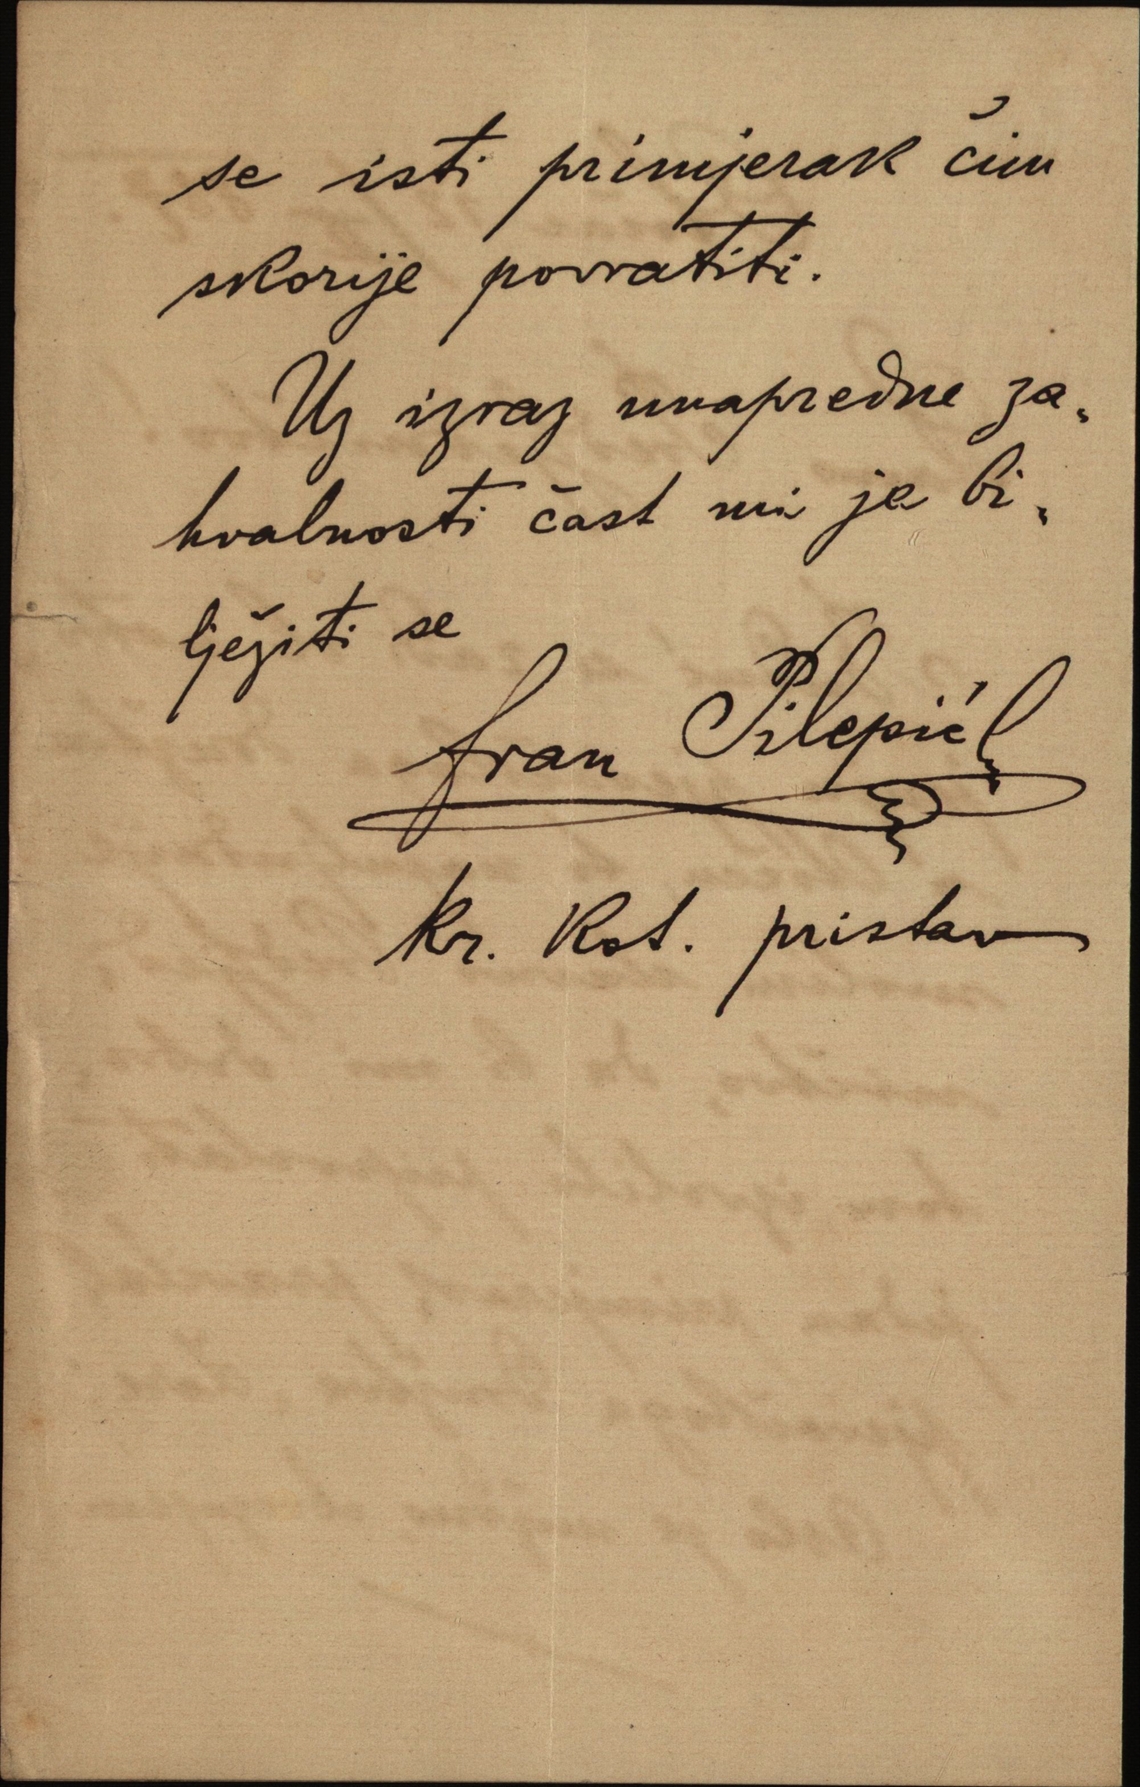 se isti primjerak čim
skorije povratiti.
Uz izraz unapredne za-
hvalnosti čast mi je bi-
lježiti se
Fran Pilepić
kr. kot. pristav